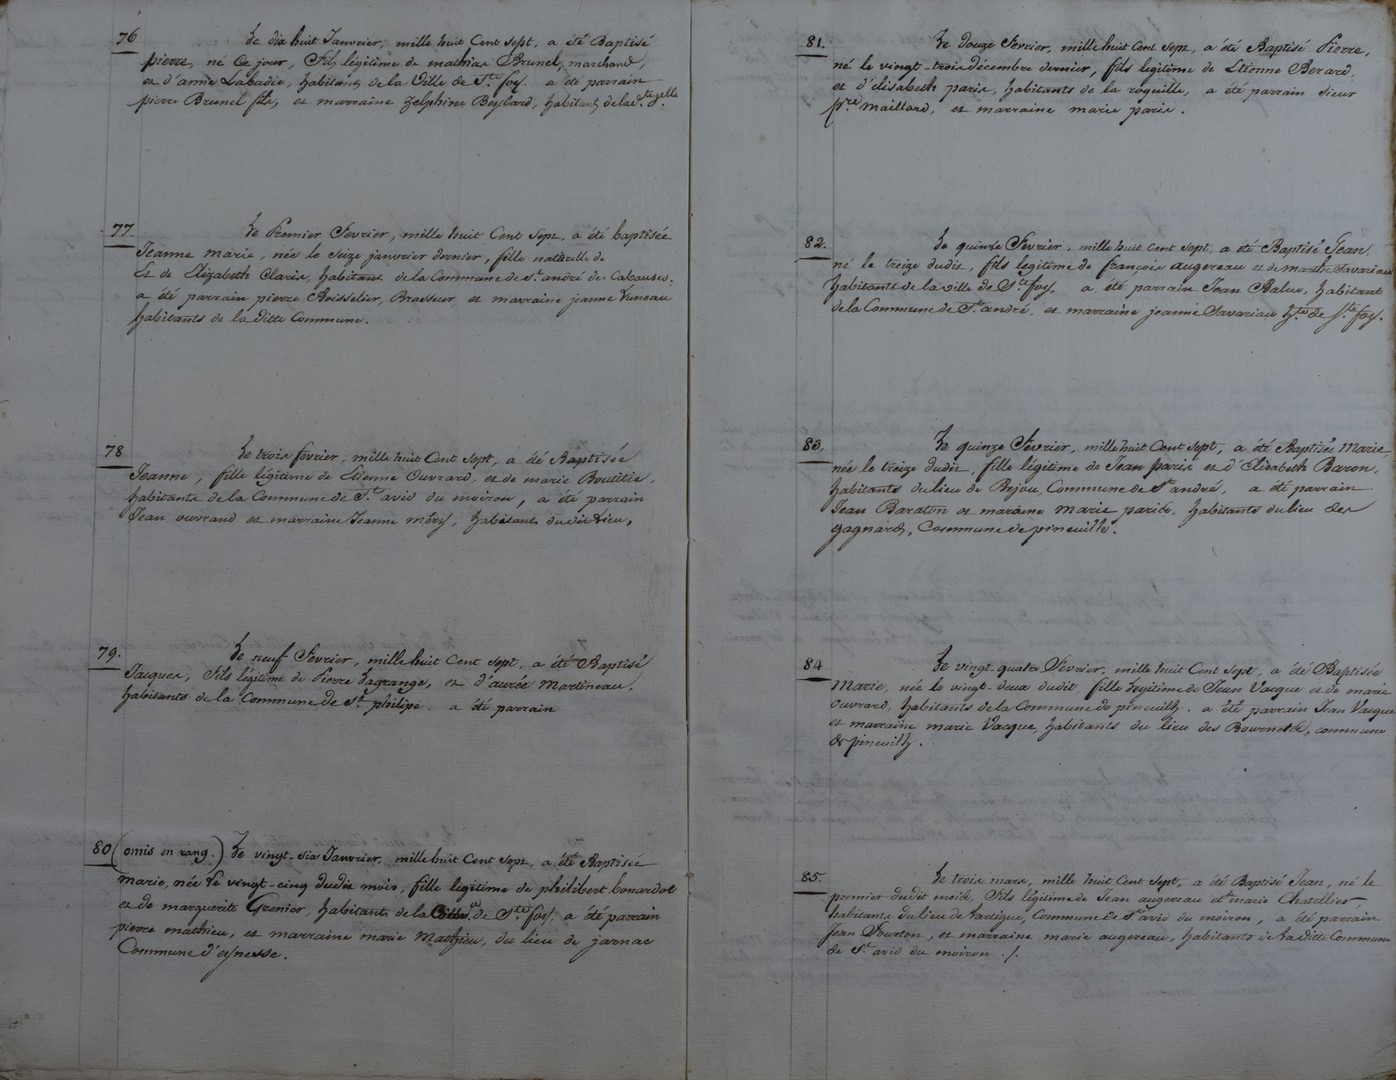 76
Le dix huit Janvrier, mille huit Cent Sept, a été Baptisé
pierre, né ce jour, Fils légitime de mathias Brunel, marchand,
et d'anne Labadie, habitants de la Ville de Ste foy. a été parrain
pierre Brunel fils, et marraine Zelphine Beylard, habitants de la
77.
Le Premier Fevrier, mille huit Cent Sept, a été baptisée
Jeanne marie, née le Seize janvrier dernier, fille naturelle de
et de Elizabeth Claris, habitant de la Commune de St andré de Cabauses.
a été parrain pierre Boisselier, Brasseur, et marraine jeanne Luneau
habitants de la ditte Commune.
78
Le trois fevrier, mille huit Cent Sept, a été Baptisée
Jeanne, fille légitime de Etienne Ouvrard, et de marie Boutitie,
habitants de la Commune de St avid du moiron, a été parrain
Jean ouvrard et marraine Jeanne méry, habitants dudit Lieu,
79.
Le neuf Fevrier, mille huit Cent Sept, a été Baptisé
Jacques, Fils légitime de Pierre Lagrange, et d'aurée Martineau,
habitants de la Commune de St philipe. a été parrain
80 (omis en rang.) Le vingt-six Janvrier, mille huit Cent Sept, a été Baptisée
marie, née Le vingt-cinq dudit mois, fille legitime de philibert bonardot
et de marguerite Grenier, habitants de la Ville de Ste foy. a été parrain
pierre mathieu, et marraine marie Mathieu, du lieu de jarnac
Commune d'eynesse.
81.
Le douze Fevrier, mille huit Cent Sept, a été Baptisé Pierre,
né le vingt-trois décembre dernier, fils légitime de Etienne Berard,
et d'élisabeth paris, habitants de la roquille, a été parrain Sieur
pre Maillard, et marraine marie paris.
82.
Le quinze Fevrier, mille huit Cent Sept, a été Baptisé Jean,
né le treize dudit, fils legitime de françois augereau et de marthe Savariau
habitants de la ville de Ste foy. a été parrain Jean Balue, habitant
de la Commune de St andré, et marraine jeanne Savariau hte de Ste foy.
83.
Le quinze Fevrier, mille huit Cent Sept, a été Baptisée Marie,
née le treize dudit, fille légitime de Jean paris et d'Elisabeth Baron,
habitants du lieu de Bejou, Commune de St andré, a été parrain
Jean Baraton et maraine Marie paris, habitants du lieu des
gagnards, Commune de pineuilh.
84
Le vingt quatre Fevrier, mille huit Cent Sept, a été Baptisée
Marie, née le vingt-deux dudit, fille légitime de Jean Vacque et de marie
Ouvrard, habitants de la Commune de pineuilh. a été parrain Jean Vacque
et marraine marie Vacque, habitants du lieu des Bournets, commune
de pineuilh.
85.
Le trois mars, mille huit Cent Sept, a été Baptisé Jean, né le
premier dudit mois, Fils légitime de Jean augereau et marie Chatellier,
habitants du lieu de Lartigue, Commune de St avid du moiron, a été parrain
Jean Fourton, et marraine marie augereau, habitants de la ditte Commune
de St avid du moiron ./.